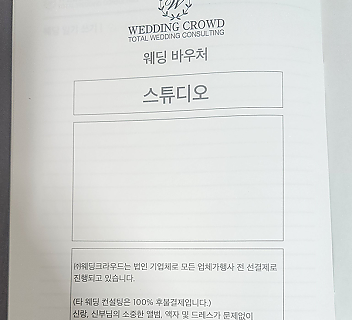 W
WEDDING CROWD
TOTAL WEDDING CONSULTING
웨딩 바우처
스튜디오
㈜웨딩크라우드는 법인 기업체로 모든 업체가행사 전 선결제로
진행되고 있습니다.
(타 웨딩 컨설팅은 100% 후불결제입니다.)
신랑, 신부님의 소중한 앨범, 액자 및 드레스가 문제없이